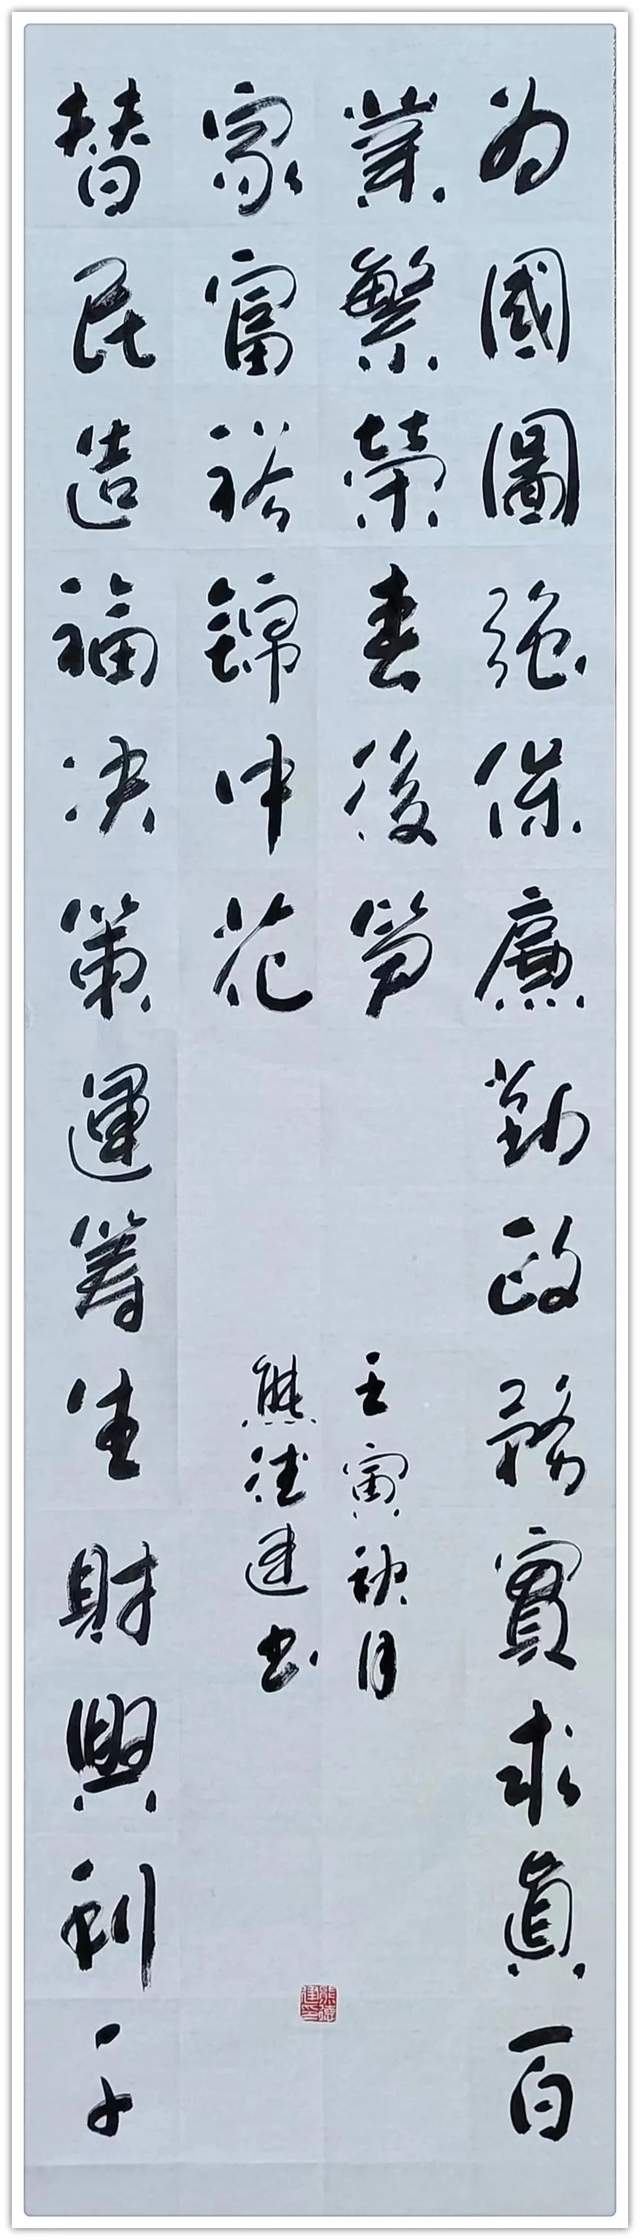 为國圖强保廉勤政務實求真百
業繁荣春後笋
替民造福决策運筹生財興利千
家富裕錦中花
壬寅秋月
熊德建书